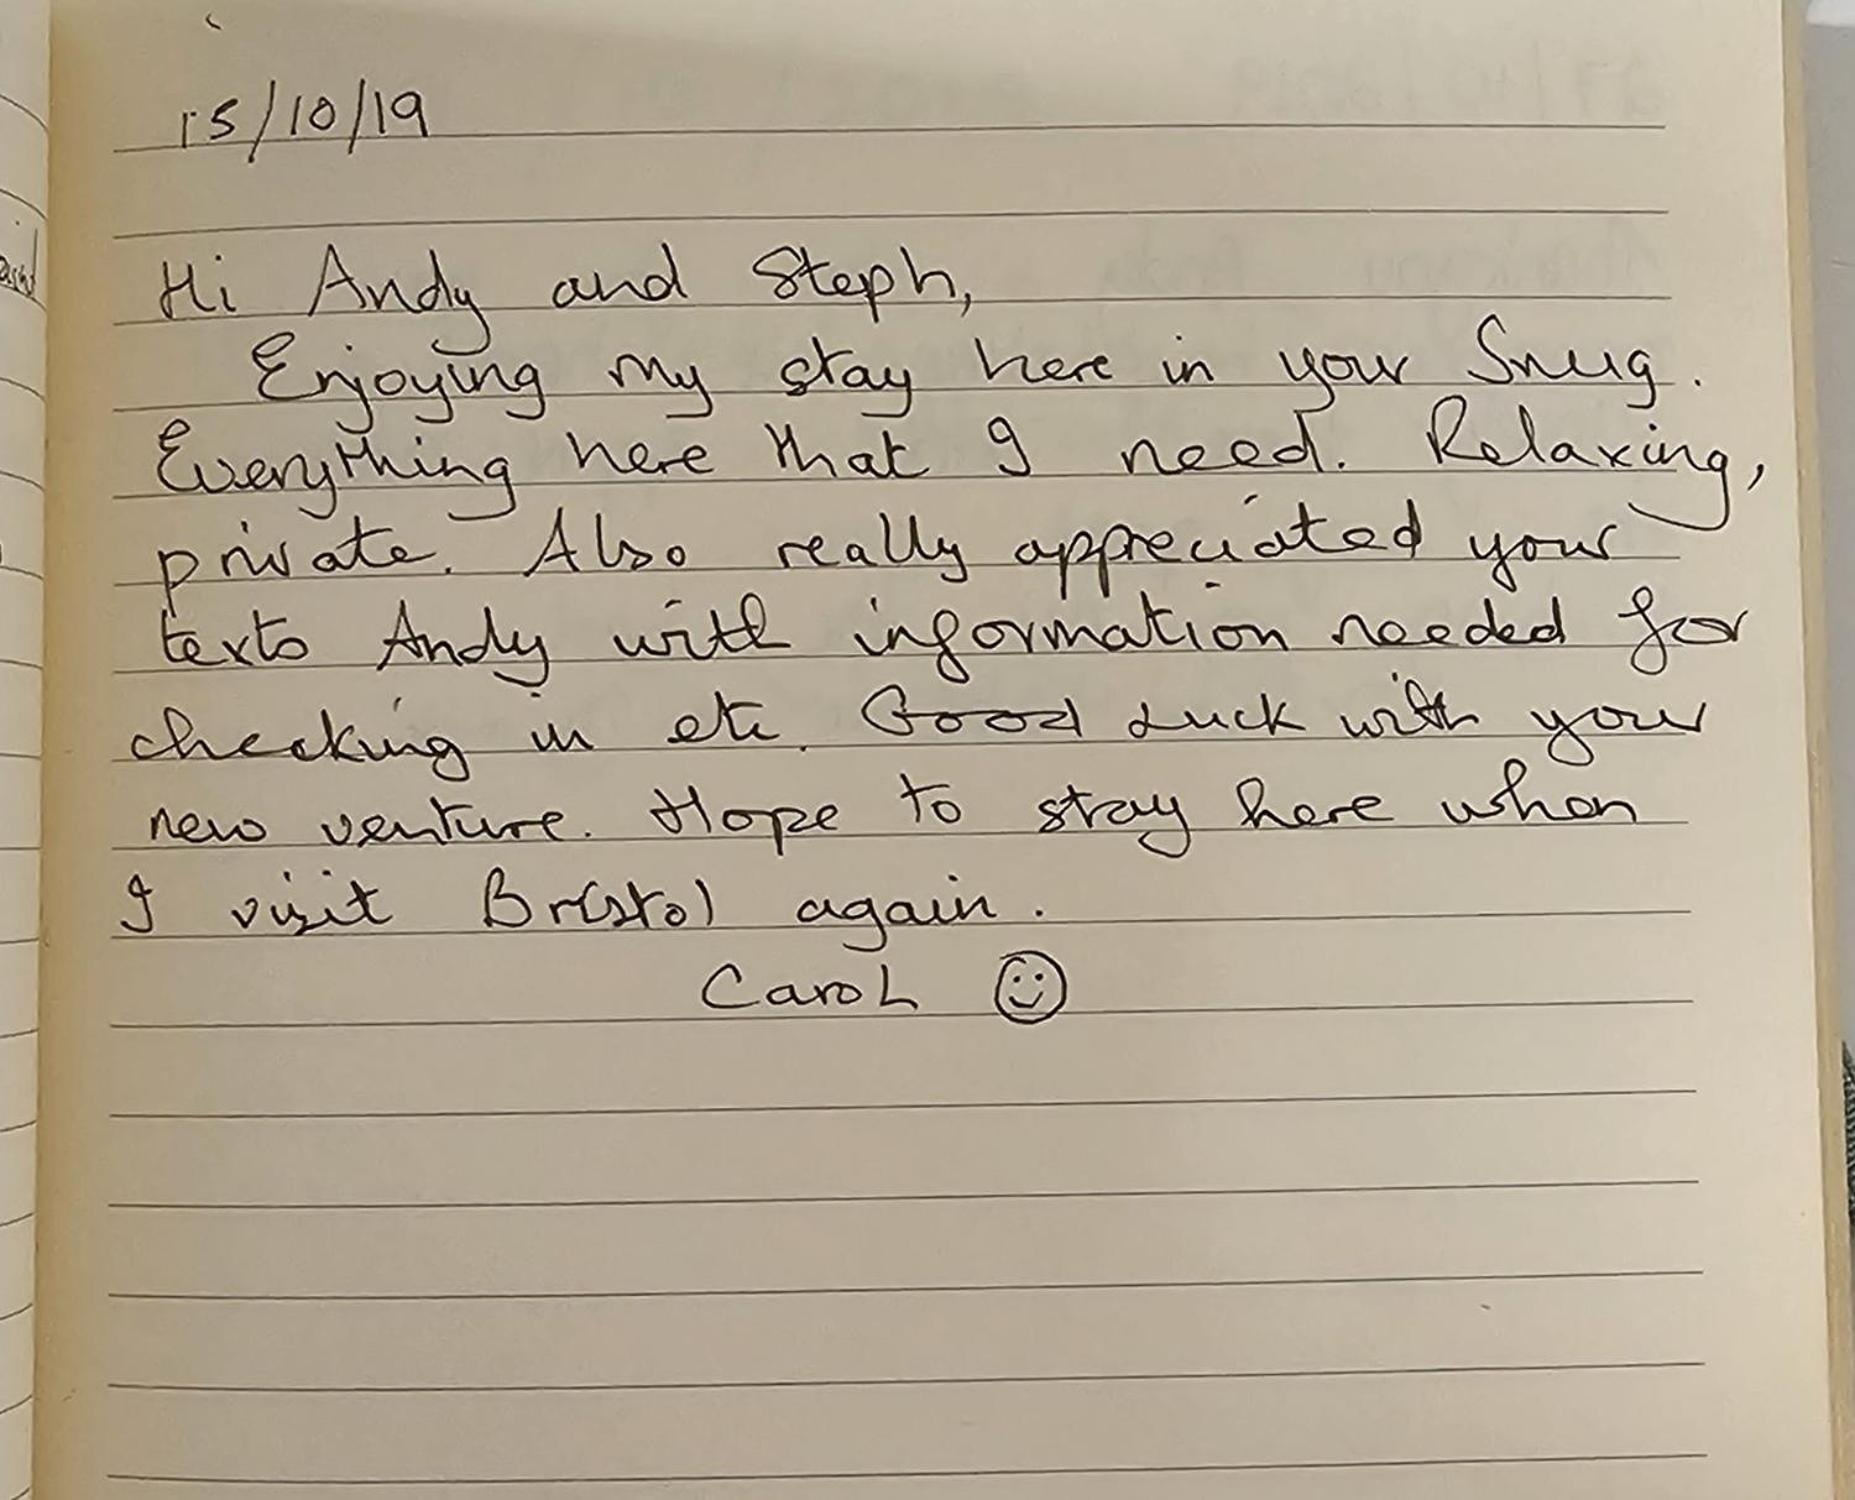 15/10/19
Hi Andy and Steph,
Enjoying my stay here in your Snug.
Everything here that I need. Relaxing,
private. Also really appreciated your
texts Andy with information needed for
checking in etc. Good Luck with your
new venture. Hope to stay here when
I visit Bristol again.
Carol ☺